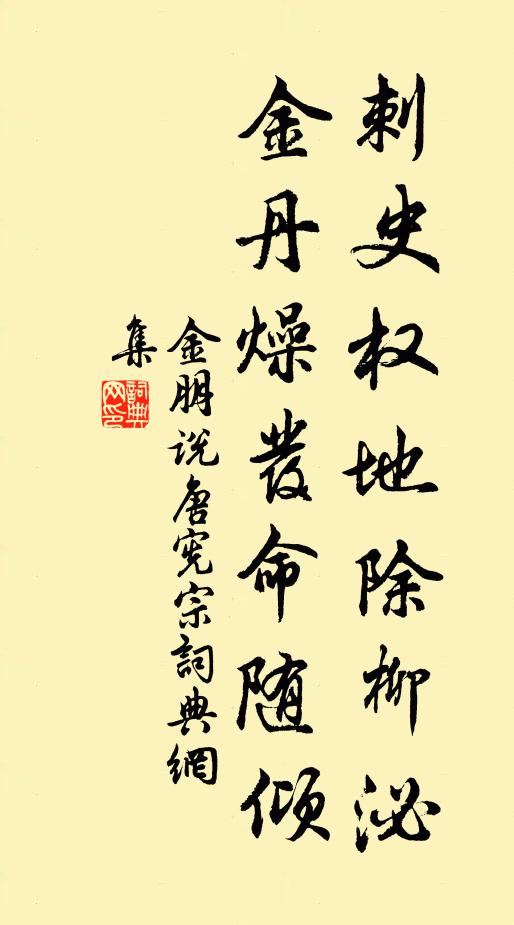 刺史权地除柳泌
金丹燥發命随倾
金朋说唐宪宗詞典網
集
詞典
网印